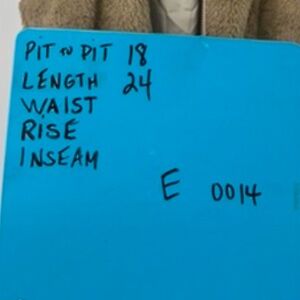 PIT to PIT 18
LENGTH 24
WAIST
RISE
INSEAM
E 0014